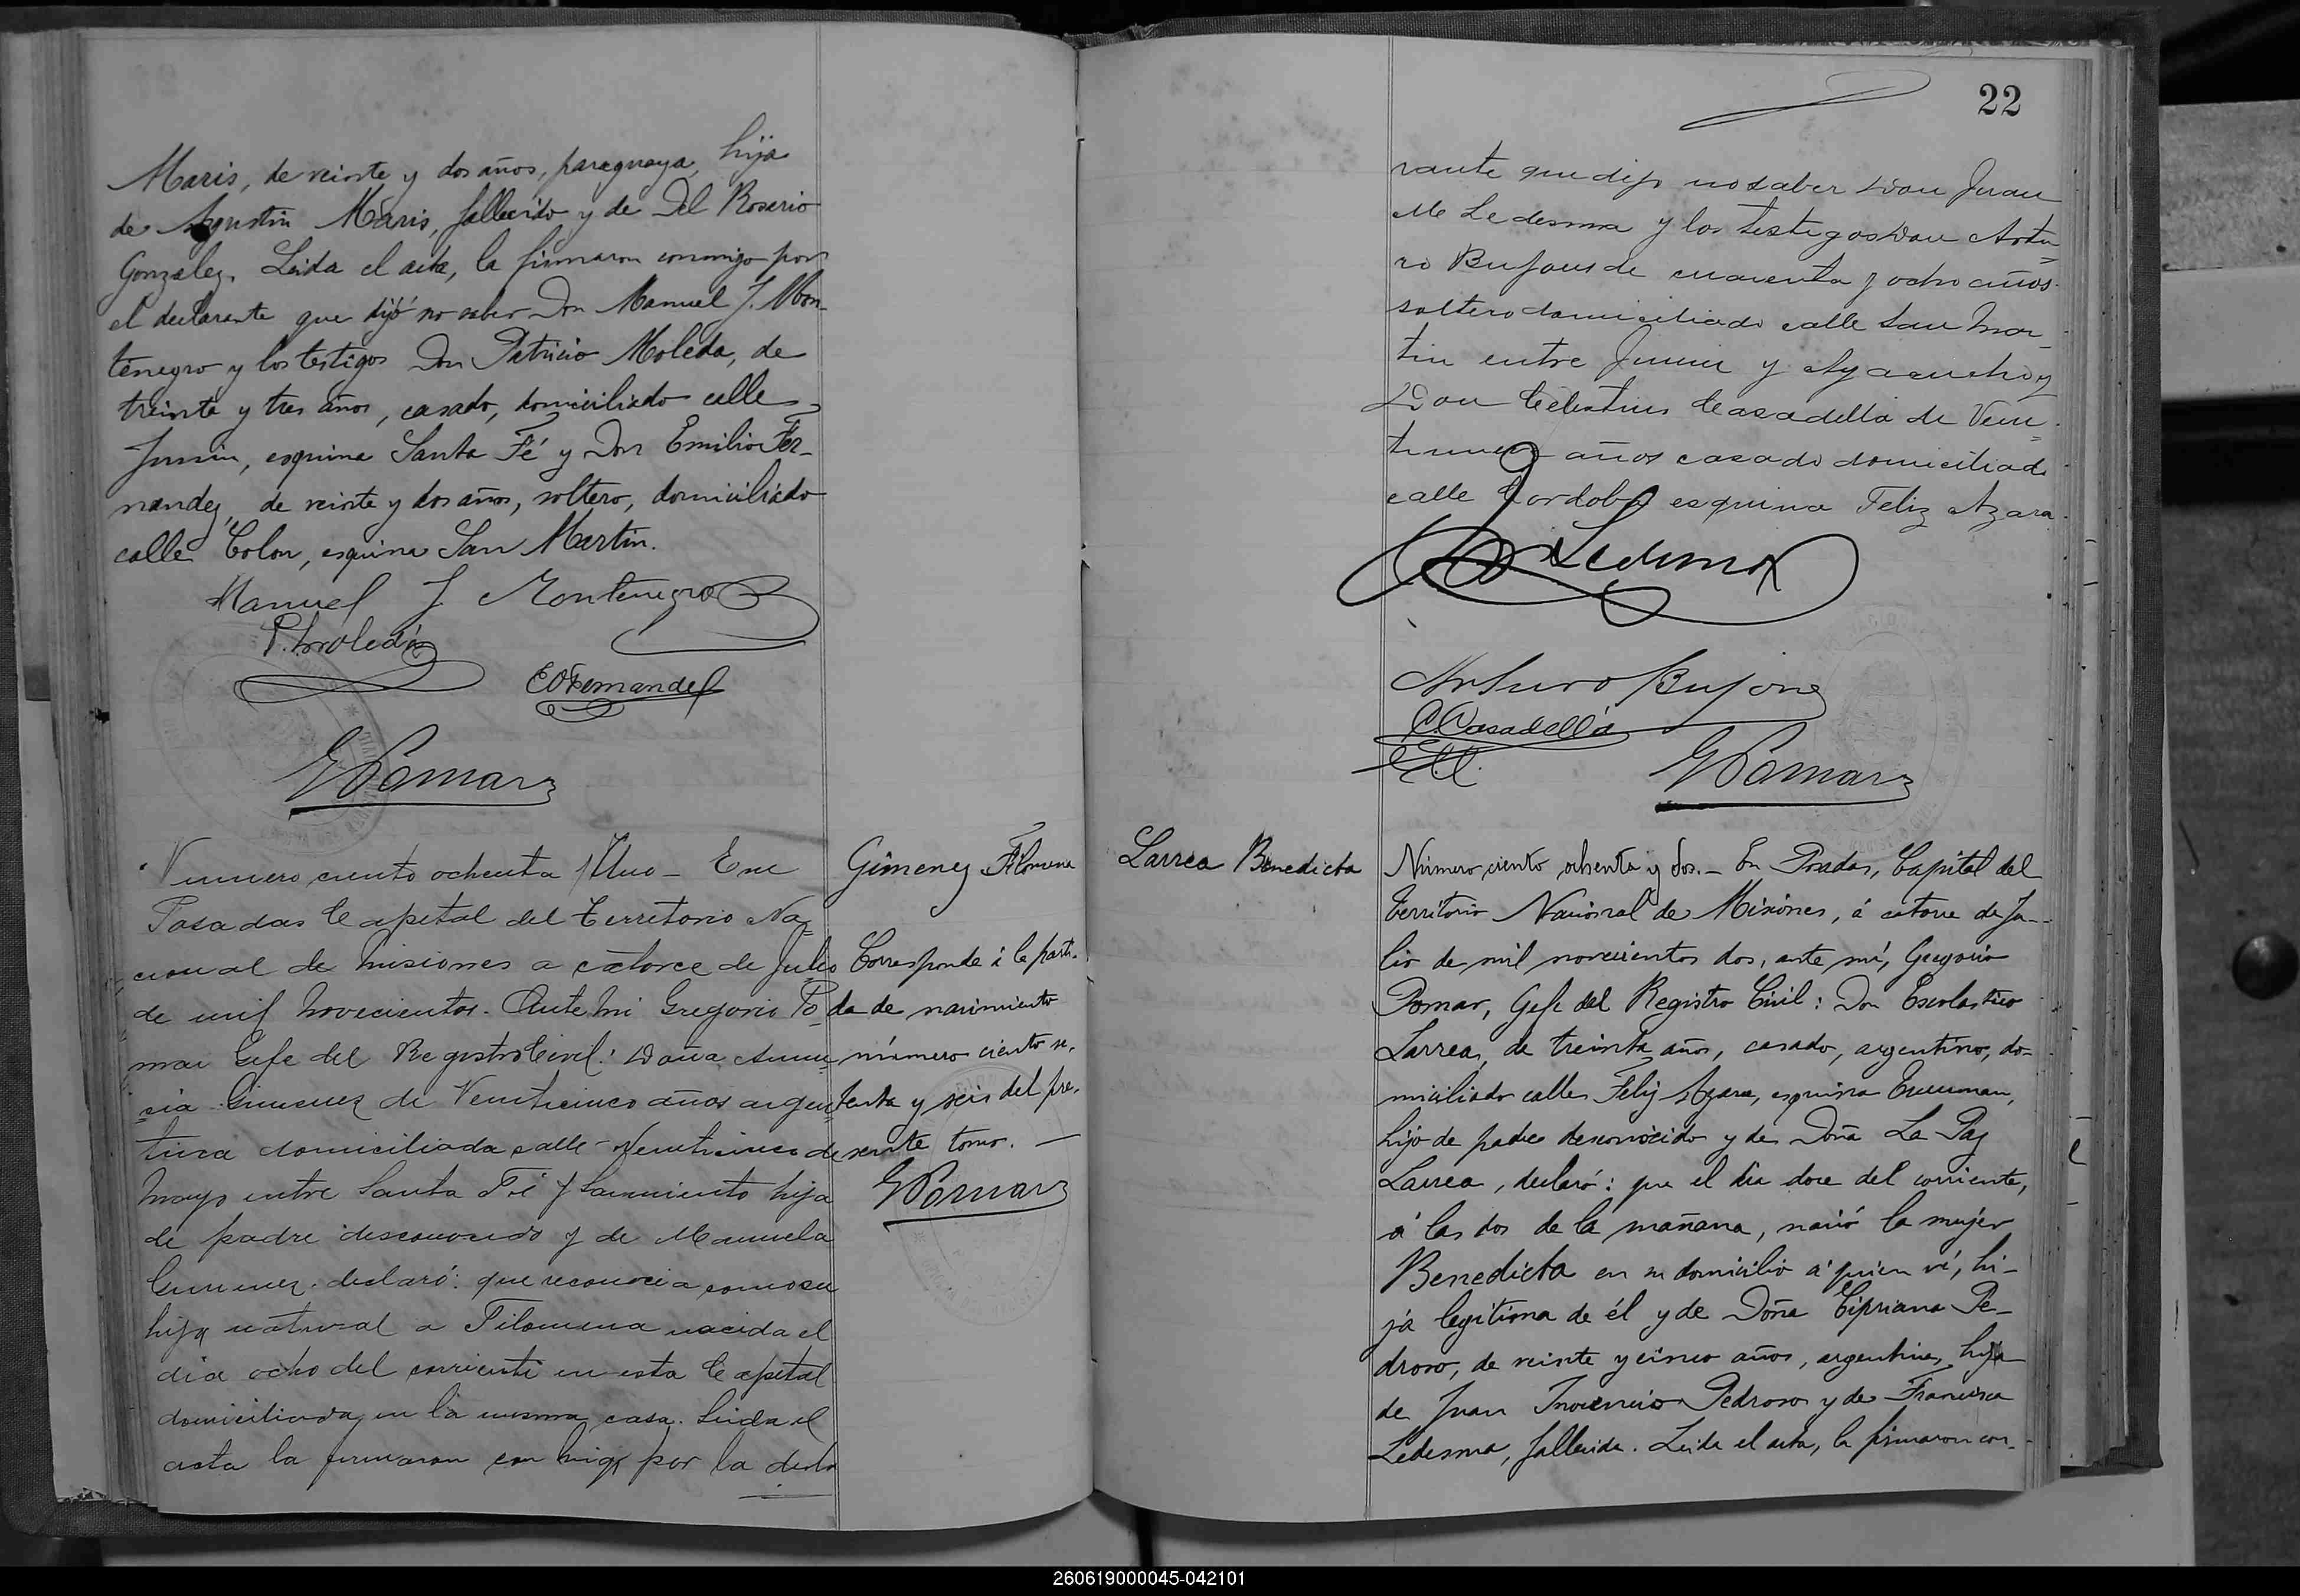 Maris, de veinte y dos años, paraguaya, hija
de Agustin Maris, fallecido y de Del Rosario
Gonzalez. Leida el acta, la firmaron conmigo por
el declarante que dijó no saber Don Manuel J. Mon-
tenegro y los testigos Don Patricio Moleda, de
treinta y tres años, casado, domiciliado calle
Junin, esquina Santa Fé y Don Emilio Fer-
nandez, de veinte y dos años, soltero, domiciliado
calle Colon, esquina San Martin.
Manuel J Montenegro
P. Moleda
E Fernandez
G Pomar
Numero ciento ochenta y Uno - En
Posadas Capital del Territorio Na-
cional de Misiones a catorce de Julio
de mil novecientos. Ante mi Gregorio Po-
mar Gefe del Registro Civil: Doña Anun-
cia Gimenez de Veinticinco años argen-
tina domiciliada calle Veinticinco de
Mayo entre Santa Fé y Sarmiento hija
de padre desconocido y de Manuela
Gimenez. declaró: que reconocia como su
hija natural a Filomena nacida el
dia ocho del corriente en esta Capital
domiciliada en la misma casa. Leida el
acta la firmaron conmigo por la decla
Gimenez Filomena
Corresponde á la parti-
da de nacimiento
número ciento se-
tenta y seis del pre-
sente tomo. -
G Pomar
22
rante que dijo no saber Don Juan
M Ledesma y los testigos Don Artu-
ro Bufons de cuarenta y ocho años
soltero domiciliado calle San Mar-
tin entre Junin y Ayacucho y
Don Celestino Casadella de Vein-
tinueve años casado domiciliado
calle Cordoba esquina Feliz Azara.
Ledesma
Arturo Bufons
C. Casadella
G Pomar
Larrea Benedicta
Número ciento ochenta y dos. - En Posadas, Capital del
Territorio Nacional de Misiones, á catorce de Ju-
lio de mil novecientos dos, ante mí, Gregorio
Pomar, Gefe del Registro Civil: Don Escolastico
Larrea, de treinta años, casado, argentino, do-
miciliado calle Feliz Azara, esquina Tucuman,
hijo de padre desconocido y de Doña La Paz
Larrea, declaró: que el dia doce del corriente,
á las dos de la mañana, nació la mujer
Benedicta en su domicilio á quien ví, hi-
ja legitima de él y de Doña Cipriana Pe-
droso, de veinte y cinco años, argentina, hija
de Juan Inocencio Pedroso y de Francisca
Ledesma, fallecida. Leida el acta, la firmaron con-
260619000045-042101